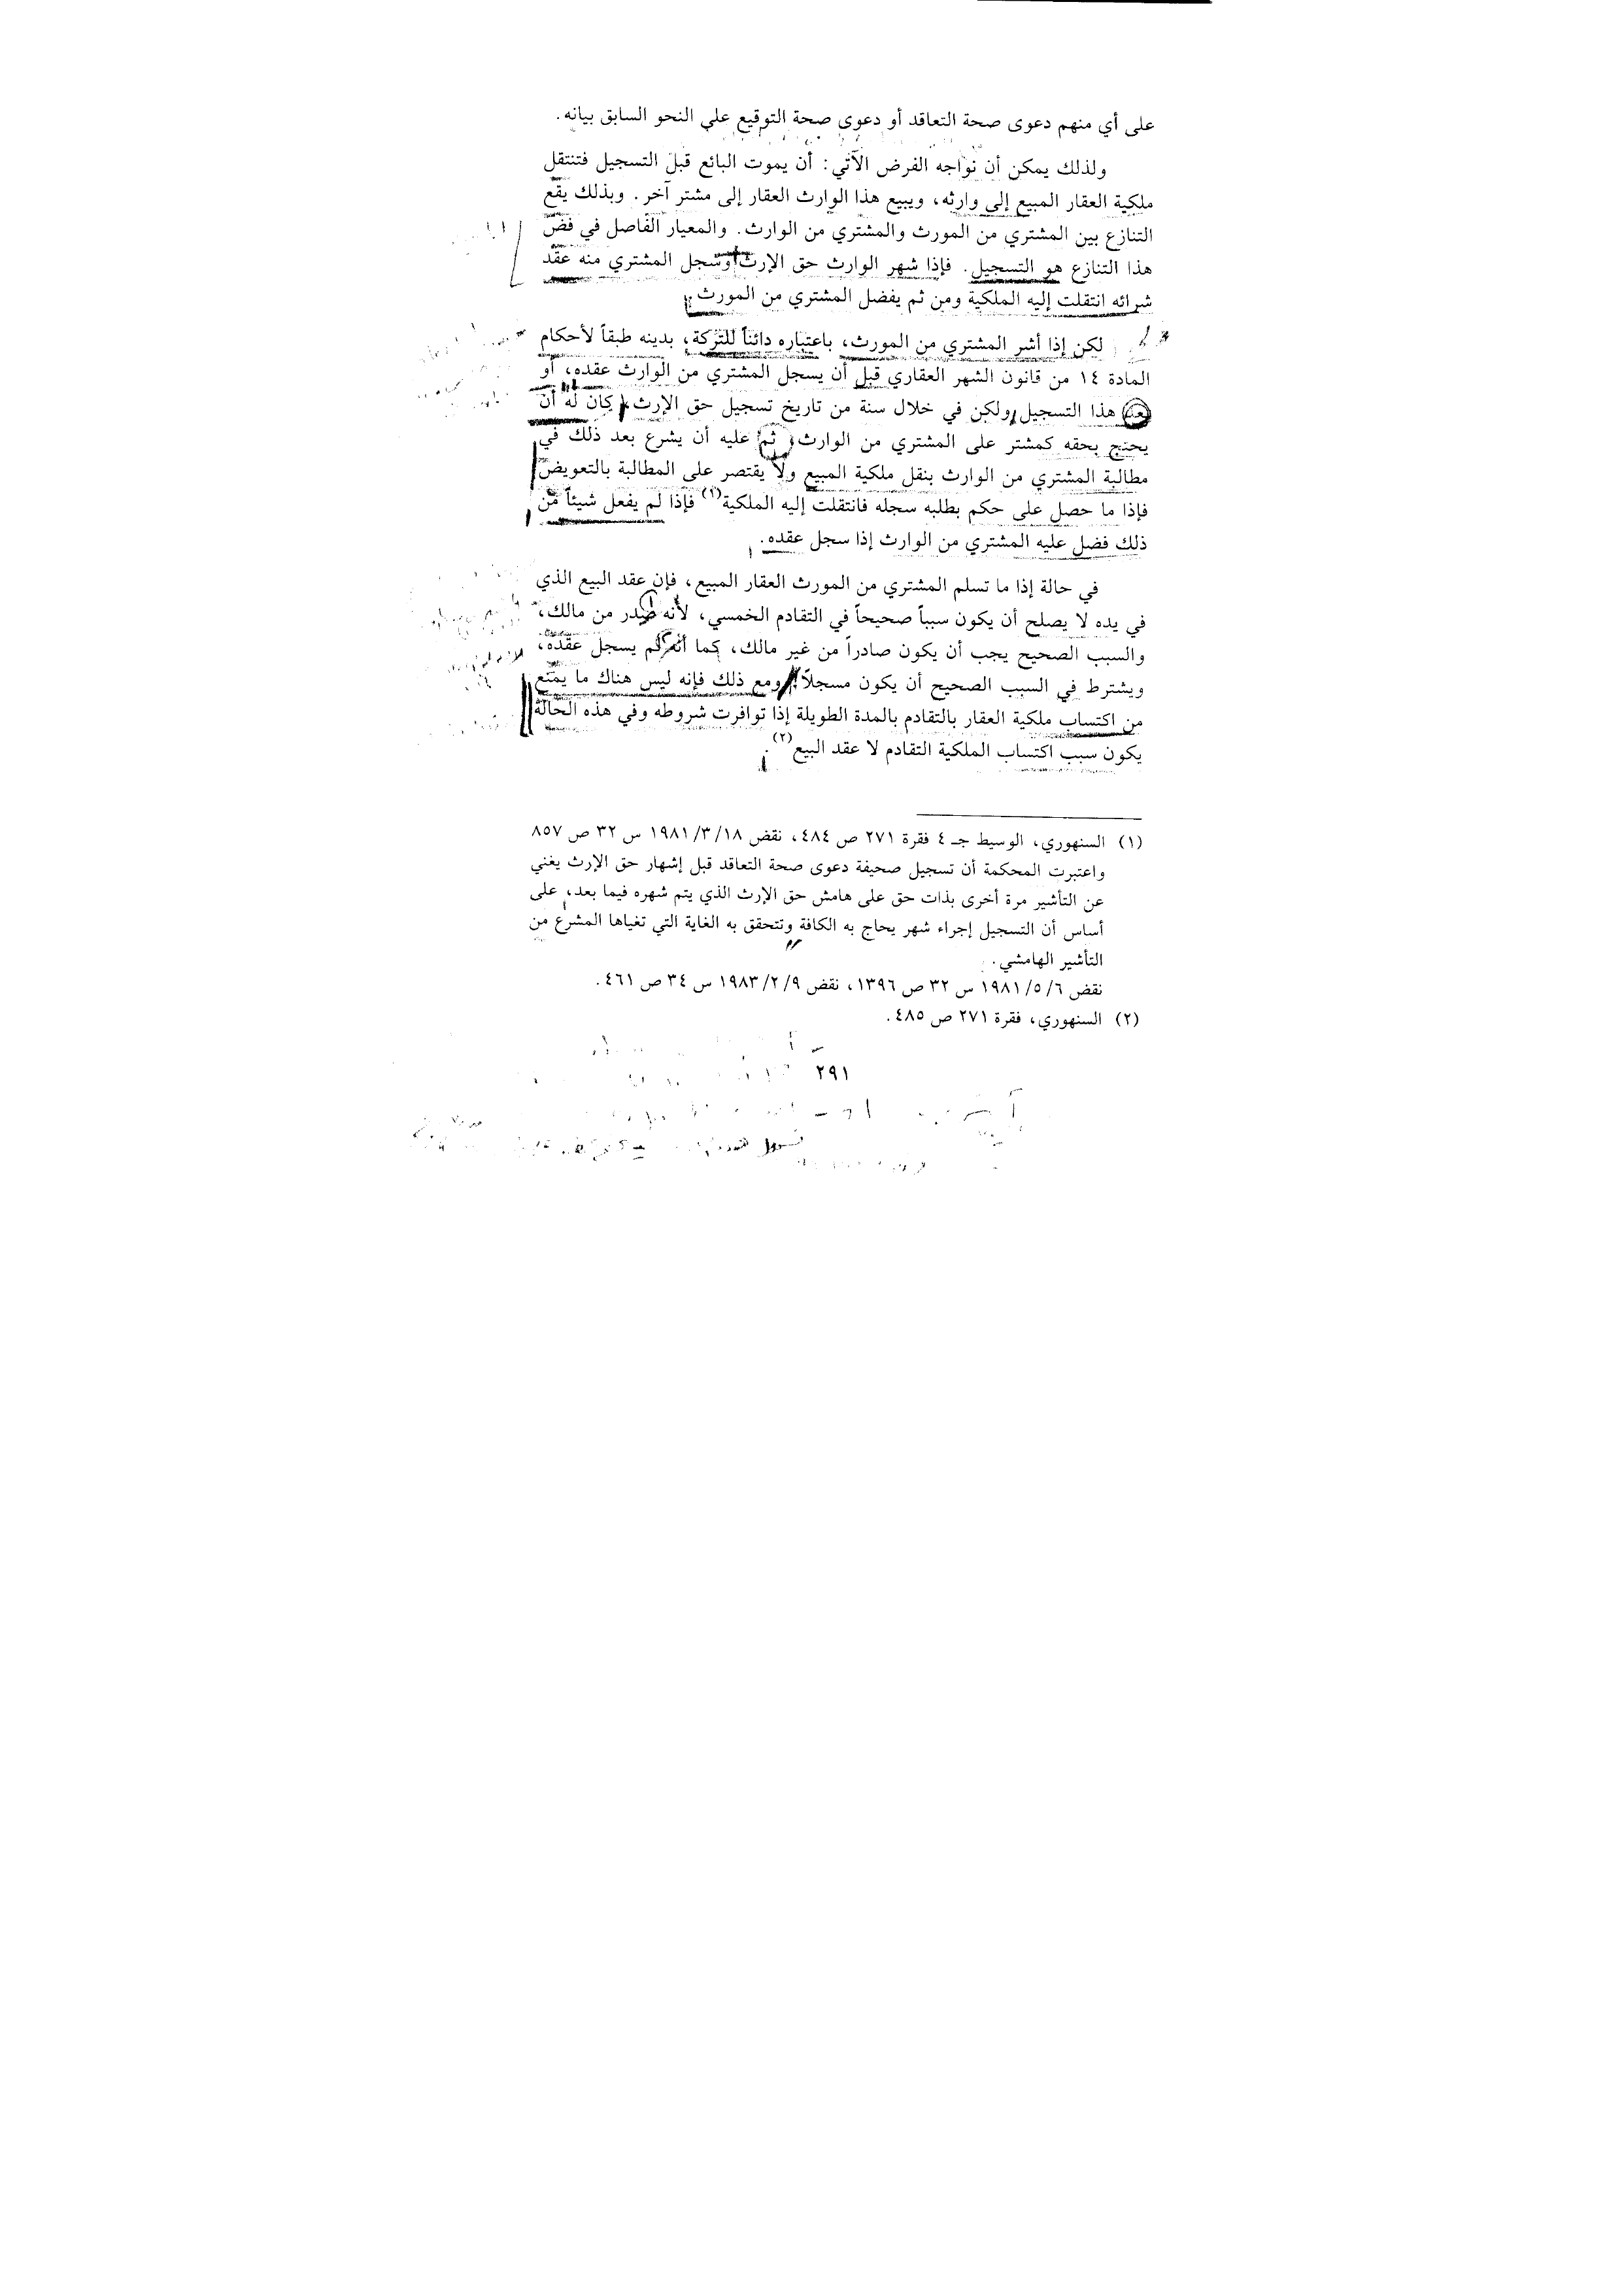 على أي منهم دعوى صحة التعاقد أو دعوى صحة التوقيع على النحو السابق بيانه.
ولذلك يمكن أن نواجه الفرض الآتي: أن يموت البائع قبل التسجيل فتنتقل
ملكية العقار المبيع إلى وارثه، ويبيع هذا الوارث العقار إلى مشتر آخر. وبذلك يقع
التنازع بين المشتري من المورث والمشتري من الوارث. والمعيار الفاصل في فض
هذا التنازع هو التسجيل. فإذا شهر الوارث حق الإرث وسجل المشتري منه عقد
شرائه انتقلت إليه الملكية ومن ثم يفضل المشتري من المورث.
لكن إذا أشر المشتري من المورث، باعتباره دائناً للتركة، بدينه طبقاً لأحكام
المادة ١٤ من قانون الشهر العقاري قبل أن يسجل المشتري من الوارث عقده، أو
بعد هذا التسجيل ولكن في خلال سنة من تاريخ تسجيل حق الإرث، كان له أن
يحتج بحقه كمشتر على المشتري من الوارث، ثم عليه أن يشرع بعد ذلك في
مطالبة المشتري من الوارث بنقل ملكية المبيع ولا يقتصر على المطالبة بالتعويض
فإذا ما حصل على حكم بطلبه سجله فانتقلت إليه الملكية(١) فإذا لم يفعل شيئاً من
ذلك فضل عليه المشتري من الوارث إذا سجل عقده.
في حالة إذا ما تسلم المشتري من المورث العقار المبيع، فإن عقد البيع الذي
في يده لا يصلح أن يكون سبباً صحيحاً في التقادم الخمسي، لأنه صدر من مالك،
والسبب الصحيح يجب أن يكون صادراً من غير مالك، كما أنه لم يسجل عقده،
ويشترط في السبب الصحيح أن يكون مسجلاً. ومع ذلك فإنه ليس هناك ما يمنع
من اكتساب ملكية العقار بالتقادم بالمدة الطويلة إذا توافرت شروطه وفي هذه الحالة
يكون سبب اكتساب الملكية التقادم لا عقد البيع(٢).
(١) السنهوري، الوسيط جـ ٤ فقرة ٢٧١ ص ٤٨٤، نقض ١٨/ ٣/ ١٩٨١ س ٣٢ ص ٨٥٧
واعتبرت المحكمة أن تسجيل صحيفة دعوى صحة التعاقد قبل إشهار حق الإرث يغني
عن التأشير مرة أخرى بذات حق على هامش حق الإرث الذي يتم شهره فيما بعد، على
أساس أن التسجيل إجراء شهر يحاج به الكافة وتتحقق به الغاية التي تغياها المشرع من
التأشير الهامشي.
نقض ٦/ ٥/ ١٩٨١ س ٣٢ ص ١٣٩٦، نقض ٩/ ٢/ ١٩٨٣ س ٣٤ ص ٤٦١.
(٢) السنهوري، فقرة ٢٧١ ص ٤٨٥.
٢٩١